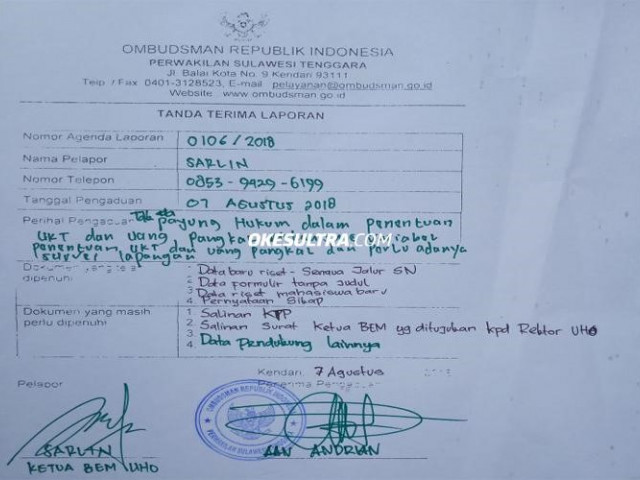 OMBUDSMAN REPUBLIK INDONESIA
PERWAKILAN SULAWESI TENGGARA
Jl. Balai Kota No. 9 Kendari 93111
Telp / Fax 0401-3128523, E-mail pelayanan@ombudsman.go.id
Website www.ombudsman.go.id
TANDA TERIMA LAPORAN
Nomor Agenda Laporan 0106 / 2018
Nama Pelapor SARLIN
Nomor Telepon 0853 - 9929 - 6199
Tanggal Pengaduan 07 AGUSTUS 2018
Perihal Pengaduan Tdk ada payung Hukum dalam penentuan
UKT dan uang pangkal
OKESULTRA.COM
penentuan UKT dan uang pangkal dan perlu adanya
survei lapangan
Dokumen yang telah dipenuhi
1 Data baru riset - Semua Jalur SN
2 Data formulir tanpa judul
3 Data riset mahasiswa baru
4 Pernyataan Sikap
Dokumen yang masih perlu dipenuhi
1 Salinan KTP
2 Salinan Surat Ketua BEM yg ditujukan kpd Rektor UHO
3
4 Data pendukung lainnya
Kendari, 7 Agustus 2018
Pelapor Penerima Pengaduan
OMBUDSMAN REPUBLIK INDONESIA
PERWAKILAN SULAWESI TENGGARA
SARLIN
KETUA BEM UHO
AAN ANDRIAN